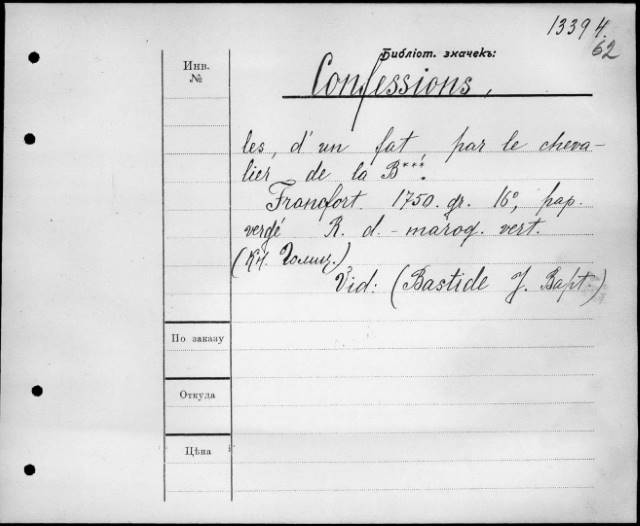 13394.
62
Библіот. значекъ:
Инв.
№
Confessions,
les, d'un fat, par le cheva-
lier de la B***.
Francfort. 1750. gr. 16°, pap.
vergé R. d.-maroq. vert.
(Кн. Голиц.)
Vid: (Bastide J. Bapt.)
По заказу
Откуда
Цѣна